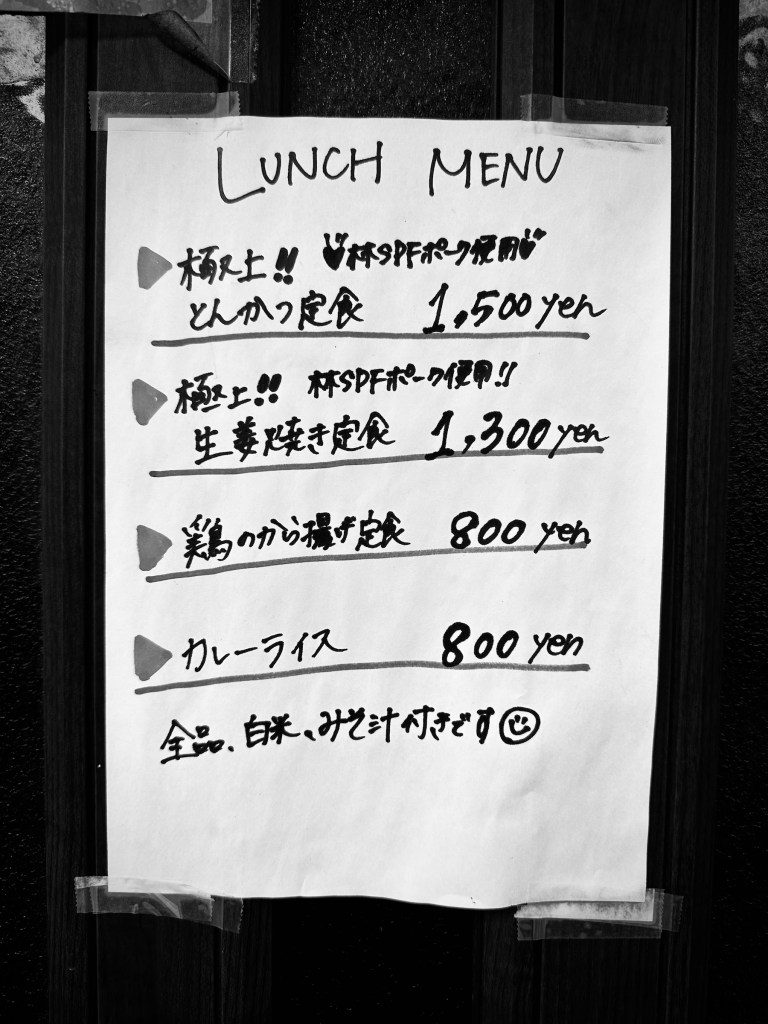 LUNCH MENU
極上!! 林SPFポーク使用
とんかつ定食 1,500yen
極上!! 林SPFポーク使用!!
生姜焼き定食 1,300yen
鶏のから揚げ定食 800 yen
カレーライス 800 yen
全品、白米、みそ汁付きです